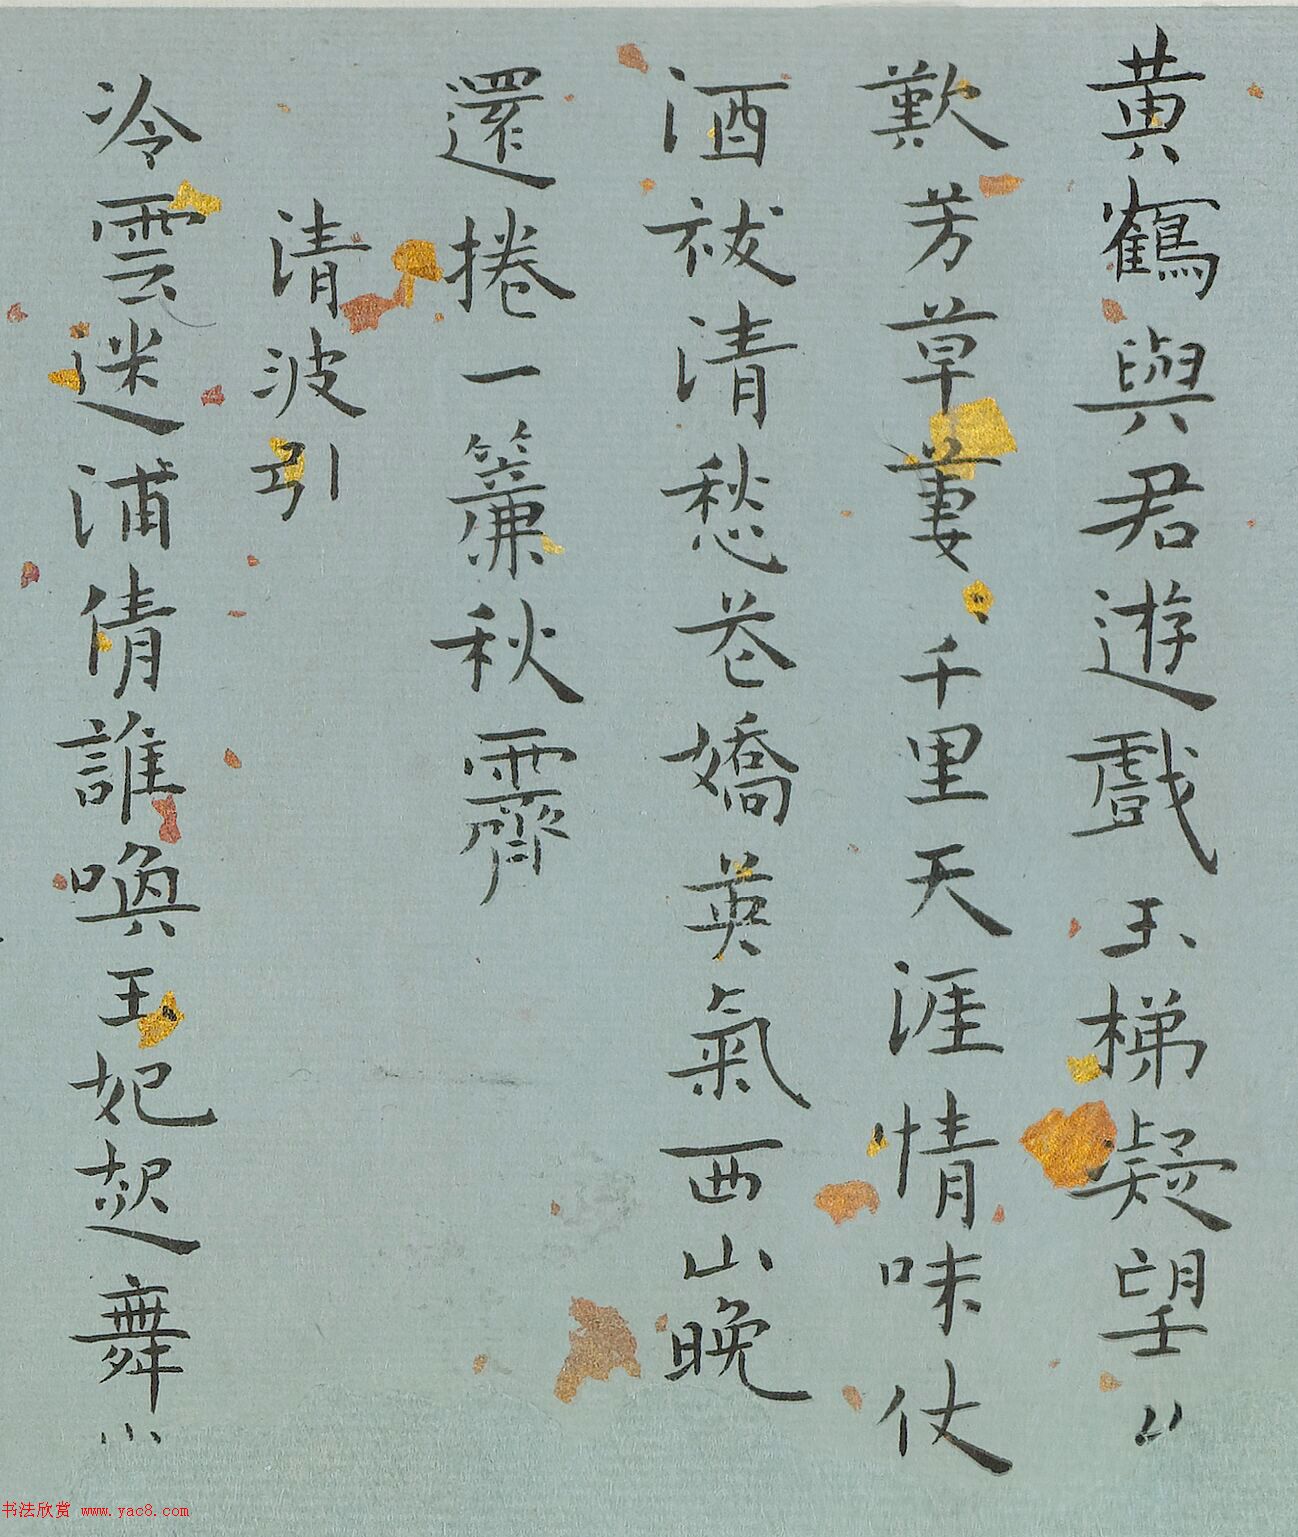 黄鶴與君遊戲玉梯凝望〻
歎芳草萋〻千里天涯情味仗
酒祓清愁花嬌英氣西山晚
還捲一簾秋霽
清波引
冷雲迷浦倩誰喚玉妃起舞
书法欣赏 www.yac8.com